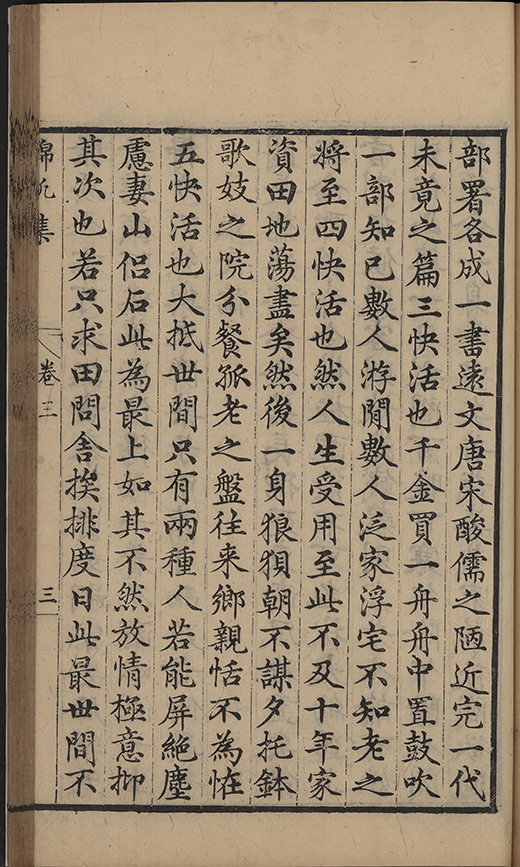 部署各成一書遠文唐宋酸儒之陋近完一代
未竟之篇三快活也千金買一舟舟中置鼓吹
一部知己數人游閒數人泛家浮宅不知老之
將至四快活也然人生受用至此不及十年家
資田地蕩盡矣然後一身狼狽朝不謀夕托鉢
歌妓之院分餐孤老之盤往来鄉親恬不為怪
五快活也大抵世間只有兩種人若能屏絶塵
慮妻山侣石此為最上如其不然放情極意抑
其次也若只求田問舍挨排度日此最世間不
錦帆集
卷三
三